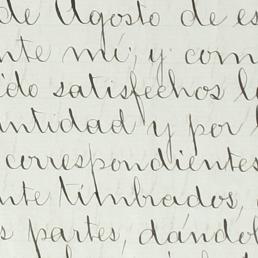 de Agosto de es
nte mí; y com
ido satisfechos l
antidad y por l
correspondientes
nte timbrados,
s partes, dándol